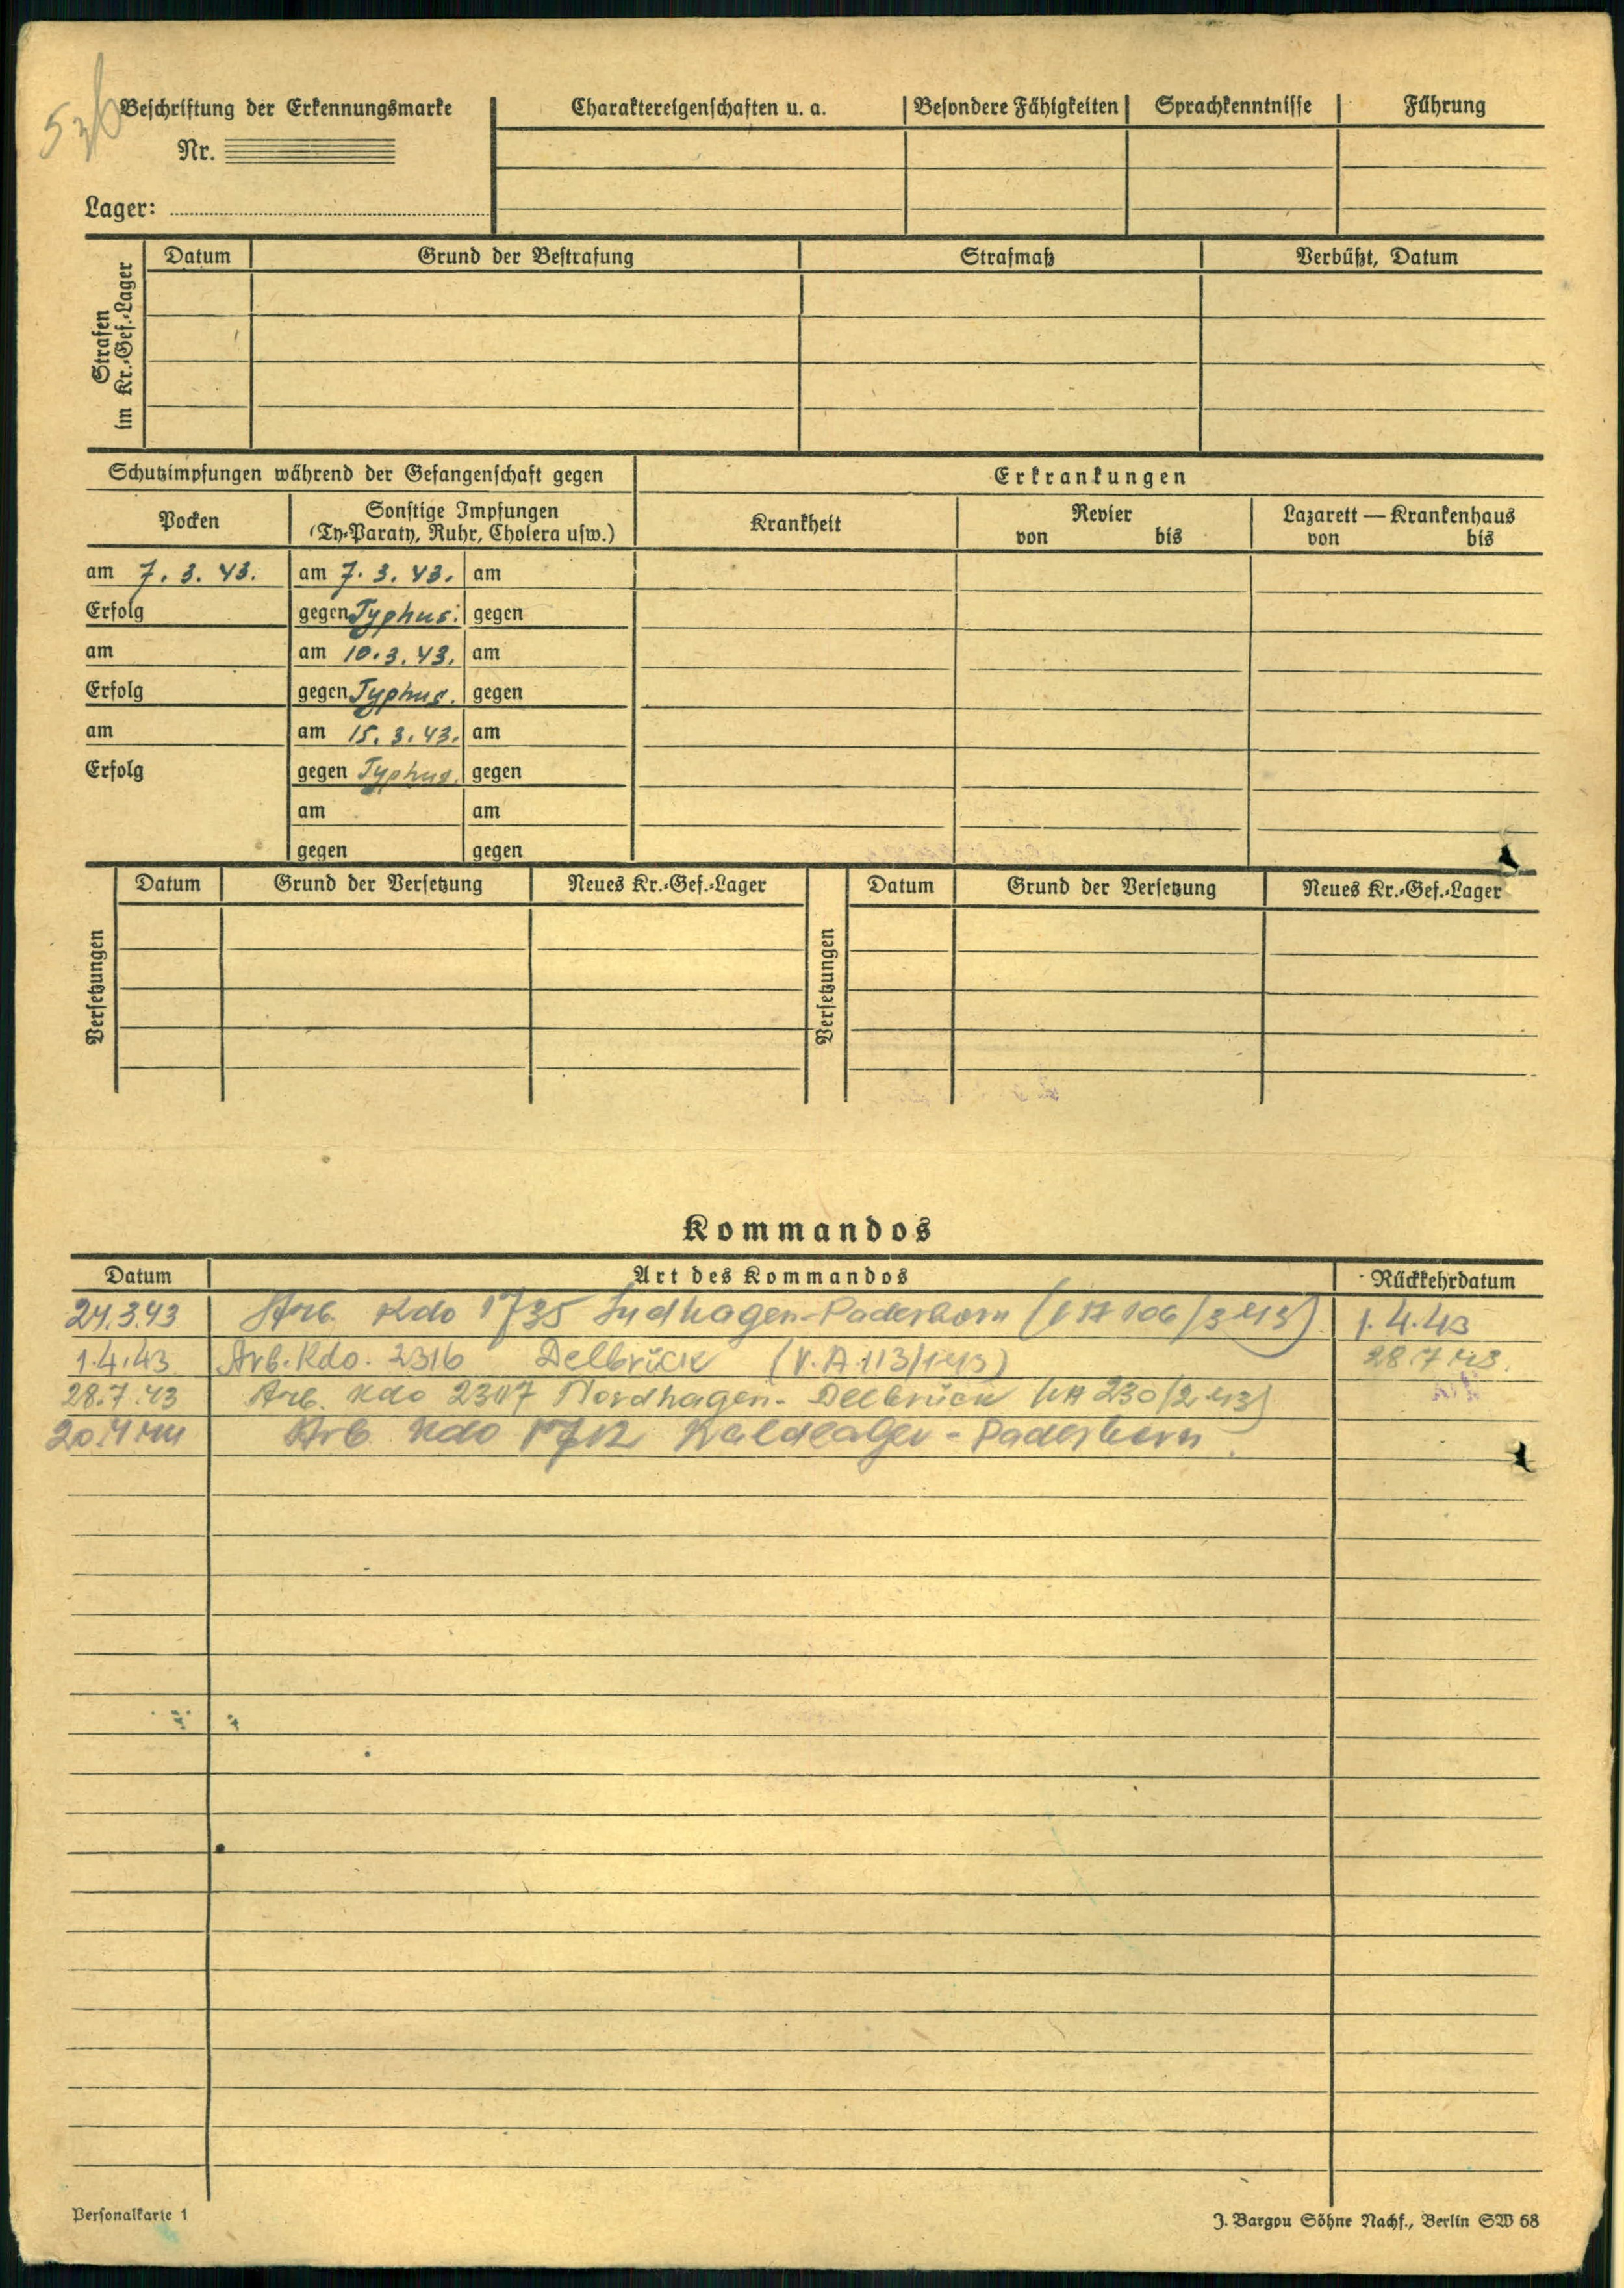 Beschriftung der Erkennungsmarke
Nr.
Lager:
Charaktereigenschaften u. a. Besondere Fähigkeiten Sprachkenntnisse Führung
Strafen
im Kr.-Gef.-Lager
Datum Grund der Bestrafung Strafmaß Verbüßt, Datum
Schutzimpfungen während der Gefangenschaft gegen
Erkrankungen
Pocken
Sonstige Impfungen
(Ty-Paraty, Ruhr, Cholera usw.)
Krankheit
Revier
von bis
Lazarett — Krankenhaus
von bis
am 7. 3. 43. am 7. 3. 43. am
Erfolg gegen Typhus. gegen
am am 10. 3. 43. am
Erfolg gegen Typhus. gegen
am am 15. 3. 43. am
Erfolg gegen Typhus. gegen
am am
gegen gegen
Versetzungen
Datum Grund der Versetzung Neues Kr.-Gef.-Lager
Versetzungen
Datum Grund der Versetzung Neues Kr.-Gef.-Lager
Kommandos
Datum Art des Kommandos Rückkehrdatum
24.3.43 Arb. Kdo 1735 Sudhagen-Paderborn ( 106/3 43) 1.4.43
1.4.43 Arb. Kdo. 2316 Delbrück (V.A. 113/1 43) 28.7.43.
28.7.43 Arb. Kdo 2307 Nordhagen-Delbrück VA 230/2 43)
20.4.44 Arb Kdo Waldlager - Paderborn
Personalkarte 1
J. Bargou Söhne Nachf., Berlin SW 68